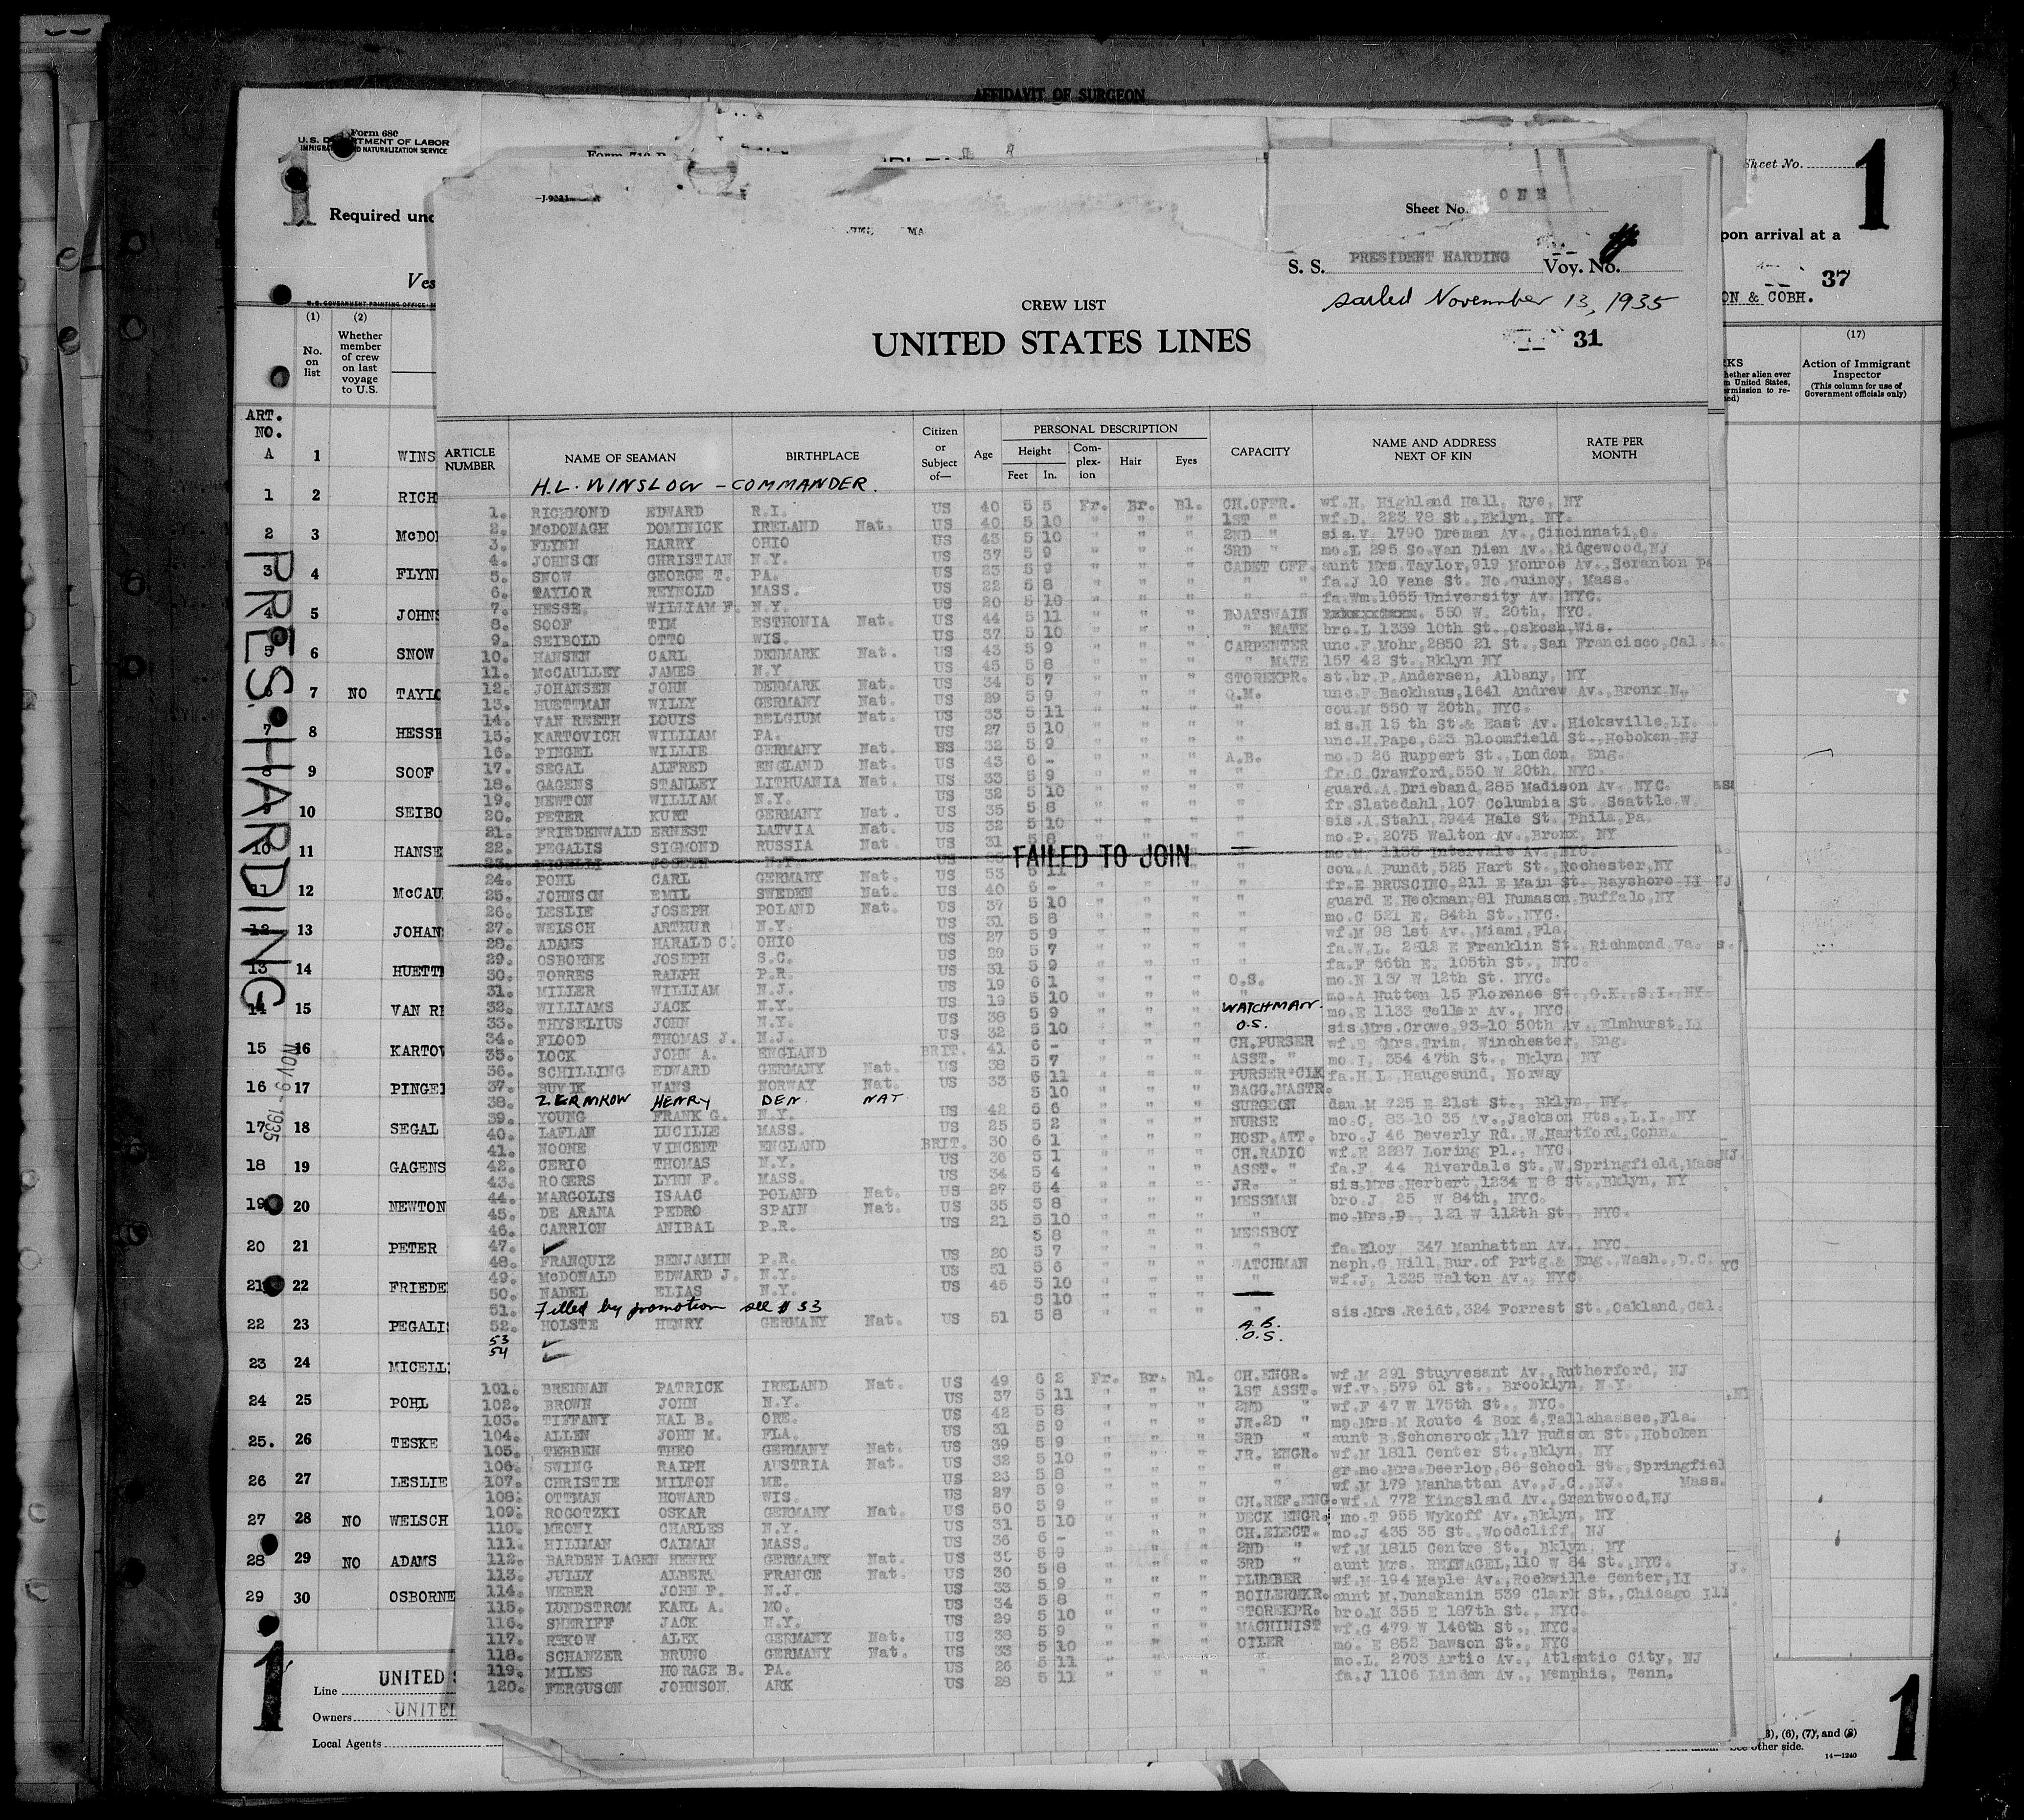 AFFIDAVIT OF SURGEON
Form 680
U.S. DEPARTMENT OF LABOR
IMMIGRATION AND NATURALIZATION SERVICE
Sheet No.
1
1
Required und
pon arrival at a
Ves
37
ON & COBH.
Sheet No. ONE
S. S. PRESIDENT HARDING Voy. No.
sailed November 13, 1935
CREW LIST
UNITED STATES LINES
31
(1) (2)
No. on list
Whether member of crew on last voyage to U.S.
(17)
Action of Immigrant Inspector
(This column for use of Government officials only)
ART. NO.
A 1 WINS
1 2 RICH
2 3 McDO
3 4 FLYN
4 5 JOHNS
5 6 SNOW
7 NO TAYLO
7 8 HESSE
9 SOOF
10 SEIBO
10 11 HANSE
11 12 McCAU
12 13 JOHAN
13 14 HUETT
14 15 VAN RE
15 16 KARTOV
16 17 PINGEL
17 18 SEGAL
18 19 GAGENS
19 20 NEWTON
20 21 PETER
21 22 FRIEDE
22 23 PEGALI
23 24 MICELL
24 25 POHL
25. 26 TESKE
26 27 LESLIE
27 28 NO WELSCH
28 29 NO ADAMS
29 30 OSBORNE
PRES. HARDING
NOV 9 - 1935
ARTICLE NUMBER NAME OF SEAMAN BIRTHPLACE Citizen or Subject of— Age PERSONAL DESCRIPTION Height Feet In. Complexion Hair Eyes CAPACITY NAME AND ADDRESS NEXT OF KIN RATE PER MONTH
H.L. WINSLOW - COMMANDER.
1. RICHMOND EDWARD R.I. US 40 5 5 Fr. Br. Bl. CH.OFFR. wf.H. Highland Hall, Rye, NY
2. McDONAGH DOMINICK IRELAND Nat. US 40 5 10 " " " 1ST " wf.D. 223 78 St., Bklyn, NY.
3. FLYNN HARRY OHIO US 43 5 10 " " " 2ND " sis.V. 1790 Dreman Av., Cincinnati,O.
4. JOHNSON CHRISTIAN N.Y. US 37 5 9 " " " 3RD " mo.L 295 So.Van Dien Av., Ridgewood,NJ
5. SNOW GEORGE T. PA. US 23 5 9 " " " CADET OFF. aunt Mrs.Taylor,919 Monroe Av., Scranton Pa
6. TAYLOR REYNOLD MASS. US 22 5 8 " " " " " fa.J 10 Vane St. No.quincy, Mass.
7. HESSE, WILLIAM F. N.Y. US 20 5 10 " " " " fa.Wm.1055 University Av. NYC.
8. SOOF TIM ESTHONIA Nat. US 44 5 11 " " " BOATSWAIN 550 W. 20th, NYC.
9. SEIBOLD OTTO WIS. US 37 5 10 " " " " MATE bro.L 1339 10th St., Oskosh,Wis.
10. HANSEN CARL DENMARK Nat. US 43 5 9 " " " CARPENTER unc.F.Mohr,2850 21 St., San Francisco,Cal.
11. McCAULLEY JAMES N.Y US 45 5 8 " " " " MATE 157 42 St., Bklyn NY
12. JOHANSEN JOHN DENMARK Nat. US 34 5 7 " " " STOREKPR. st.br.P.Andersen, Albany, NY
13. HUETTMAN WILLY GERMANY Nat. US 29 5 9 " " " Q.M. unc.F.Backhaus,1641 Andrew Av., Bronx N.
14. VAN REETH LOUIS BELGIUM Nat. US 33 5 11 " " " " cou.M 550 W 20th, NYC.
15. KARTOVICH WILLIAM PA. US 27 5 10 " " " " sis.H 15 th St.& East Av. Hicksville,LI.
16. PINGEL WILLIE GERMANY Nat. US 32 5 9 " " " " unc.H.Pape,623 Bloomfield St.,Hoboken,NJ
17. SEGAL ALFRED ENGLAND Nat. US 43 6 - " " " A.B. mo.D 26 Ruppert St., London, Eng.
18. GAGENS STANLEY LITHUANIA Nat. US 33 5 9 " " " " fr.C.Crawford,550 W 20th, NYC.
19. NEWTON WILLIAM N.Y. US 32 5 10 " " " " guard.A.Drieband,285 Madison Av. NYC.
20. PETER KURT GERMANY Nat. US 35 5 8 " " " " fr.Slatedahl,107 Columbia St. Seattle.W.
21. FRIEDENWALD ERNEST LATVIA Nat. US 32 5 10 " " " " sis.A.Stahl,2944 Hale St., Phila,Pa.
22. PEGALIS SIGMOND RUSSIA Nat US 31 5 8 " " " " mo.P. 2075 Walton Av., Bronx, NY
23. MICELLI JOSEPH N.Y. US FAILED TO JOIN mo.M. 1133 Intervale Av., NYC.
24. POHL CARL GERMANY Nat. US 53 5 11 " " " " cou.A Pundt,525 Hart St., Rochester,NY
25. JOHNSON EMIL SWEDEN Nat. US 40 6 - " " " " fr.E BRUSCINO,211 E Main St. Bayshore LI
26. LESLIE JOSEPH POLAND Nat. US 37 5 10 " " " " guard E.Heckman,81 Humason,Buffalo,NY
27. WELSCH ARTHUR N.Y. US 31 5 8 " " " " mo.C 521 E. 84th St., NYC.
28. ADAMS HARALD C. OHIO US 27 5 9 " " " " wf.M 98 1st Av., Miami,Fla.
29. OSBORNE JOSEPH S.C. US 29 5 7 " " " " fa.W.L. 2812 E Franklin St., Richmond,Va.
30. TORRES RALPH P.R. US 31 5 9 " " " " fa.F 66th E. 105th St., NYC.
31. MILLER WILLIAM N.J. US 19 6 1 " " " O.S. mo.N 137 W 12th St. NYC.
32. WILLIAMS JACK N.Y. US 19 5 10 " " " " mo.A Hutten 15 Florence St.,G.K.,S.I.,NY.
33. THYSELIUS JOHN N.Y. US 38 5 9 " " " WATCHMAN. mo.E 1133 Teller Av., NYC
34. FLOOD THOMAS J. N.J. US 32 5 10 " " " O.S. sis.Mrs.Crowe,93-10 50th Av. Elmhurst,LI
35. LOCK JOHN A. ENGLAND BRIT. 41 6 - " " " CH.PURSER wf.E Mrs.Trim, Winchester, Eng.
36. SCHILLING EDWARD GERMANY Nat. US 38 5 7 " " " ASST. " mo.I, 354 47th St., Bklyn, NY
37. BUVIK HANS NORWAY Nat. US 33 5 11 " " " PURSER*CLK fa.H.L., Haugesund, Norway
38. ZERMKOW HENRY DEN. NAT 5 10 " " " BAGG.MASTR.
39. YOUNG FRANK G. N.Y. US 42 5 6 " " " SURGEON dau.M 725 E 21st St., Bklyn, NY.
40. LAFLAN LUCILLE MASS. US 25 5 2 " " " NURSE mo.C, 83-10 35 Av., Jackson Hts.,L.I.,NY
41. NOONE VINCENT ENGLAND BRIT. 30 6 1 " " " HOSP.ATT. bro.J 46 Beverly Rd.,W.Hartford,Conn.
42. CERIO THOMAS N.Y. US 36 5 1 " " " CH.RADIO wf.E 2287 Loring Pl., NYC.
43. ROGERS LYNN F. MASS. US 34 5 4 " " " ASST. " fa.F. 44 Riverdale St.,W.Springfield,Mass
44. MARGOLIS ISAAC POLAND Nat. US 27 5 4 " " " JR. " sis.Mrs.Herbert,1234 E 8 St.,Bklyn, NY
45. DE ARANA PEDRO SPAIN Nat. US 35 5 8 " " " MESSMAN bro.J. 25 W 84th, NYC.
46. CARRION ANIBAL P.R. US 21 5 10 " " " " mo.Mrs.P. 121 W 112th St., NYC.
47. 5 8 " " " MESSBOY
48. FRANQUIZ BENJAMIN P.R. US 20 5 7 " " " " fa.Eloy 347 Manhattan Av., NYC.
49. McDONALD EDWARD J. N.Y. US 51 5 6 " " " WATCHMAN neph.G.Hill,Bur.of Prtg.& Eng.,Wash.,D.C.
50. NADEL ELIAS N.Y. US 45 5 10 " " " " wf.J, 1325 Walton Av., NYC.
51. Filled by promotion see # 33 5 10 " " "
52. HOLSTE HENRY GERMANY Nat. US 51 5 8 " " " " sis.Mrs.Reidt,324 Forrest St.,Oakland,Cal.
53 A.B.
54 O.S.
101. BRENNAN PATRICK IRELAND Nat. US 49 6 2 Fr. Br. Bl. CH.ENGR. wf.M 291 Stuyvesant Av.,Rutherford, NJ
102. BROWN JOHN N.Y. US 37 5 11 " " " 1ST ASST. wf.V. 579 61 St., Brooklyn, N.Y.
103. TIFFANY HAL B. ORE. US 42 5 8 " " " 2ND " wf.F 47 W 175th St., NYC.
104. ALLEN JOHN M. FLA. US 31 5 9 " " " JR.2D " mo.Mrs.M Route 4 Box 4,Tallahassee,Fla.
105. TERBEN THEO GERMANY Nat. US 39 5 9 " " " 3RD " aunt B.Schonsrock,117 Hudson St.,Hoboken
106. SWING RALPH AUSTRIA Nat. US 32 5 10 " " " JR. ENGR. wf.M 1811 Center St., Bklyn, NY
107. CHRISTIE MILTON ME. US 23 5 8 " " " " gr.mo.Mrs.Deerlop,86 School St., Springfiel
108. OTTMAN HOWARD WIS. US 27 5 9 " " " " wf.M 179 Manhattan Av.,J.C.,NJ. Mass.
109. ROGOTZKI OSKAR GERMANY Nat. US 50 5 9 " " " CH.REF.ENG. wf.A 772 Kingsland Av.,Grantwood,NJ
110. MEONI CHARLES N.Y. US 31 5 10 " " " DECK ENGR. mo.T 955 Wykoff Av.,Bklyn, NY
111. HILLMAN CALMAN MASS. US 36 6 - " " " CH.ELECT. mo.J 435 35 St.,Woodcliff, NJ
112. BARDEN LAGEN HENRY GERMANY Nat. US 5 9 " " " 2ND " wf.M 1815 Centre St., Bklyn, NY
113. JULLY ALBERT FRANCE Nat. US 30 5 8 " " " 3RD " aunt Mrs. REINAGEL,110 W 84 St.,NYC.
114. WEBER JOHN F. N.J. US 33 5 9 " " " PLUMBER wf.M 194 Maple Av.,Rockville Center,LI
115. LUNDSTROM KARL A. MO. US 34 5 8 " " " BOILERMKR. aunt M.Dunskanin 539 Clark St.,Chicago Ill
116. SHERIFF JACK N.Y. US 29 5 10 " " " STOREKPR. bro.M 355 E 187th St., NYC.
117. REKOW ALEX GERMANY Nat. US 38 5 9 " " " MACHINIST wf.G 479 W 146th St., NYC.
118. SCHANZER BRUNO GERMANY Nat. US 33 5 10 " " " OILER mo. E 852 Dawson St., NYC
119. MILES HORACE B. PA. US 26 5 11 " " " " mo.L. 2703 Artic Av., Atlantic City, NJ
120. FERGUSON JOHNSON ARK US 28 5 11 " " " " fa.J 1106 Linden Av., Memphis, Tenn.
1
1
Line UNITED S
Owners UNITED
Local Agents
(6), (7), and (8)
See other side.
14—1240